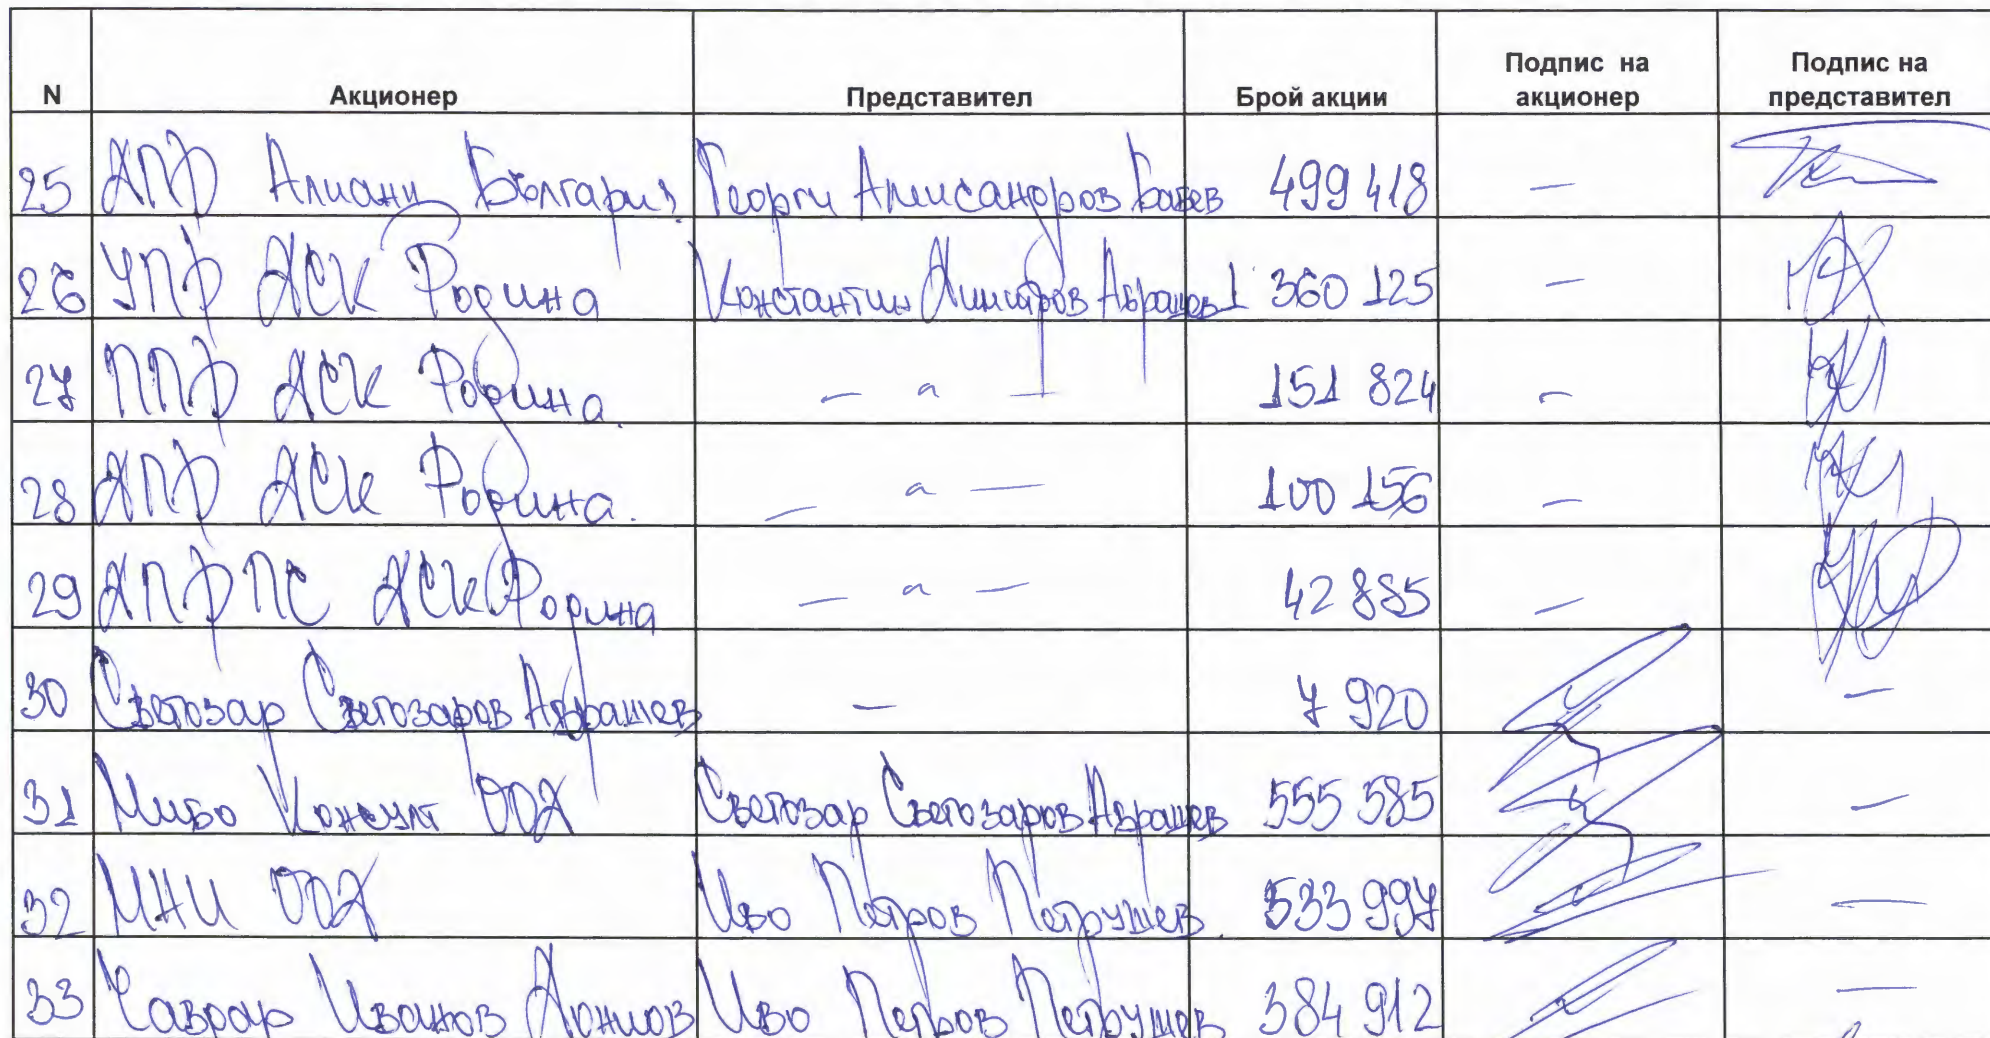 N Акционер Представител Брой акции Подпис на акционер Подпис на представител
25 ДПФ Алианц България Георги Александров Бачев 499 418 —
26 УПФ ДСК Родина Константин Димитров Абрашев 1 360 125 —
27 ППФ ДСК Родина — " — 151 824 —
28 ДПФ ДСК Родина. — " — 100 156 —
29 ДПФПС ДСК Родина — " — 42 885 —
30 Светозар Светозаров Абрашев — 7 920 —
31 Консулт ООД Светозар Светозаров Абрашев 555 585 —
32 ООД Иво Петров Петрушев 533 997 —
33 Иванов Иво Петров Петрушев 384 912 —